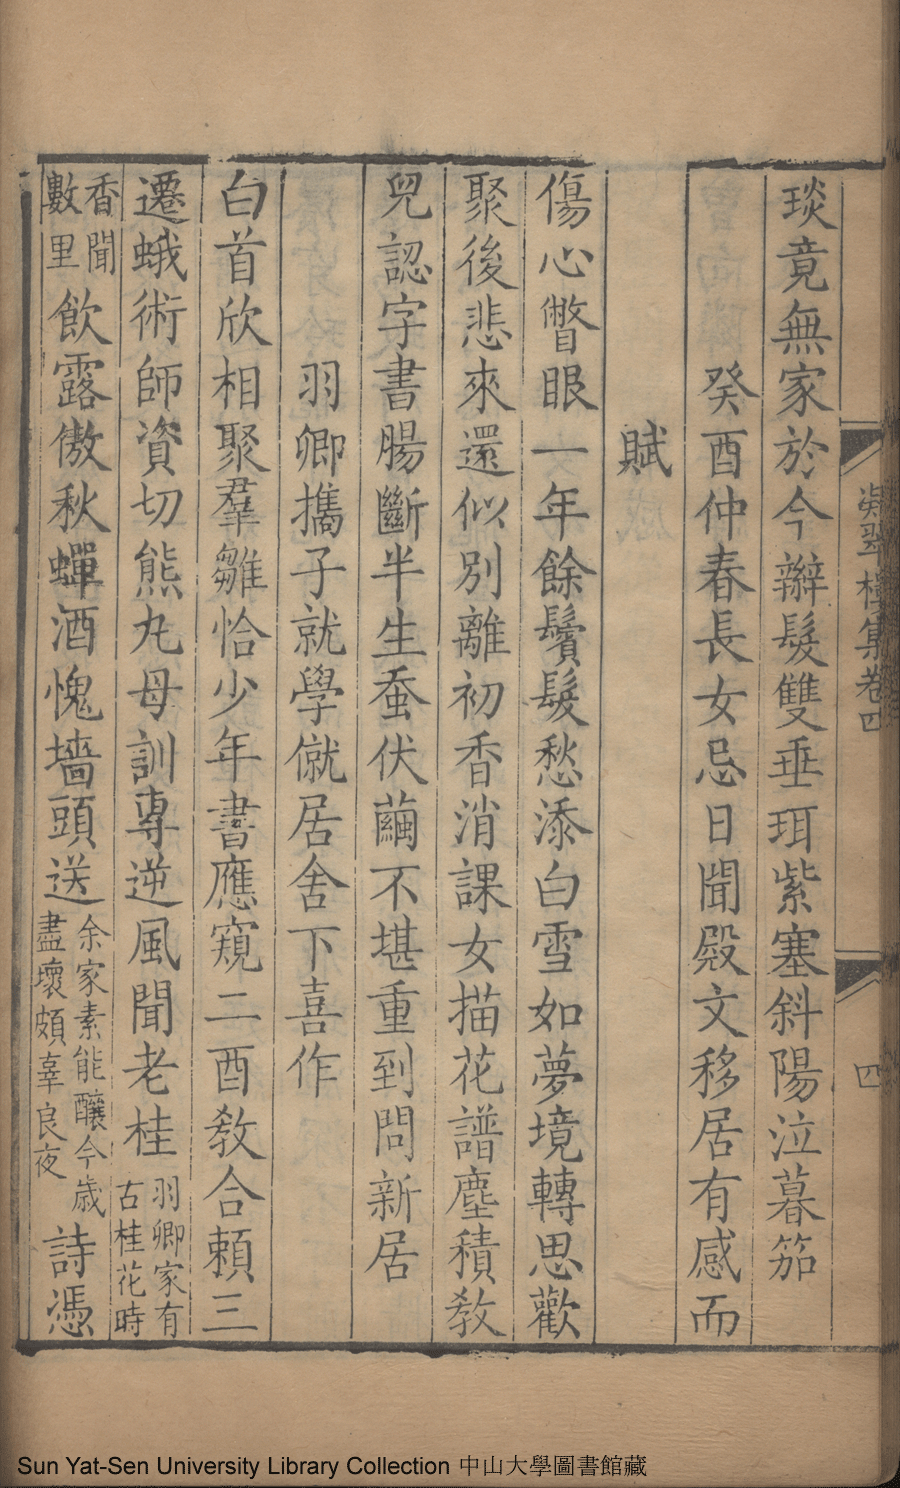 琰竟無家於今辮髮雙垂珥紫塞斜陽泣暮笳
癸酉仲春長女忌日聞殿文移居有感而
賦
傷心瞥眼一年餘鬢髮愁添白雪如夢境轉思歡
聚後悲來還似別離初香消課女描花譜塵積敎
兒認字書腸斷半生蚕伏繭不堪重到問新居
羽卿攜子就學僦居舍下喜作
白首欣相聚羣雛恰少年書應窺二酉敎合賴三
遷蛾術師資切熊丸母訓專逆風聞老桂羽卿家有古桂花時
香聞數里飲露傲秋蟬酒愧墻頭送余家素能釀今歲盡壞頗辜良夜詩憑
凝翠樓集卷四
四
Sun Yat-Sen University Library Collection 中山大學圖書館藏